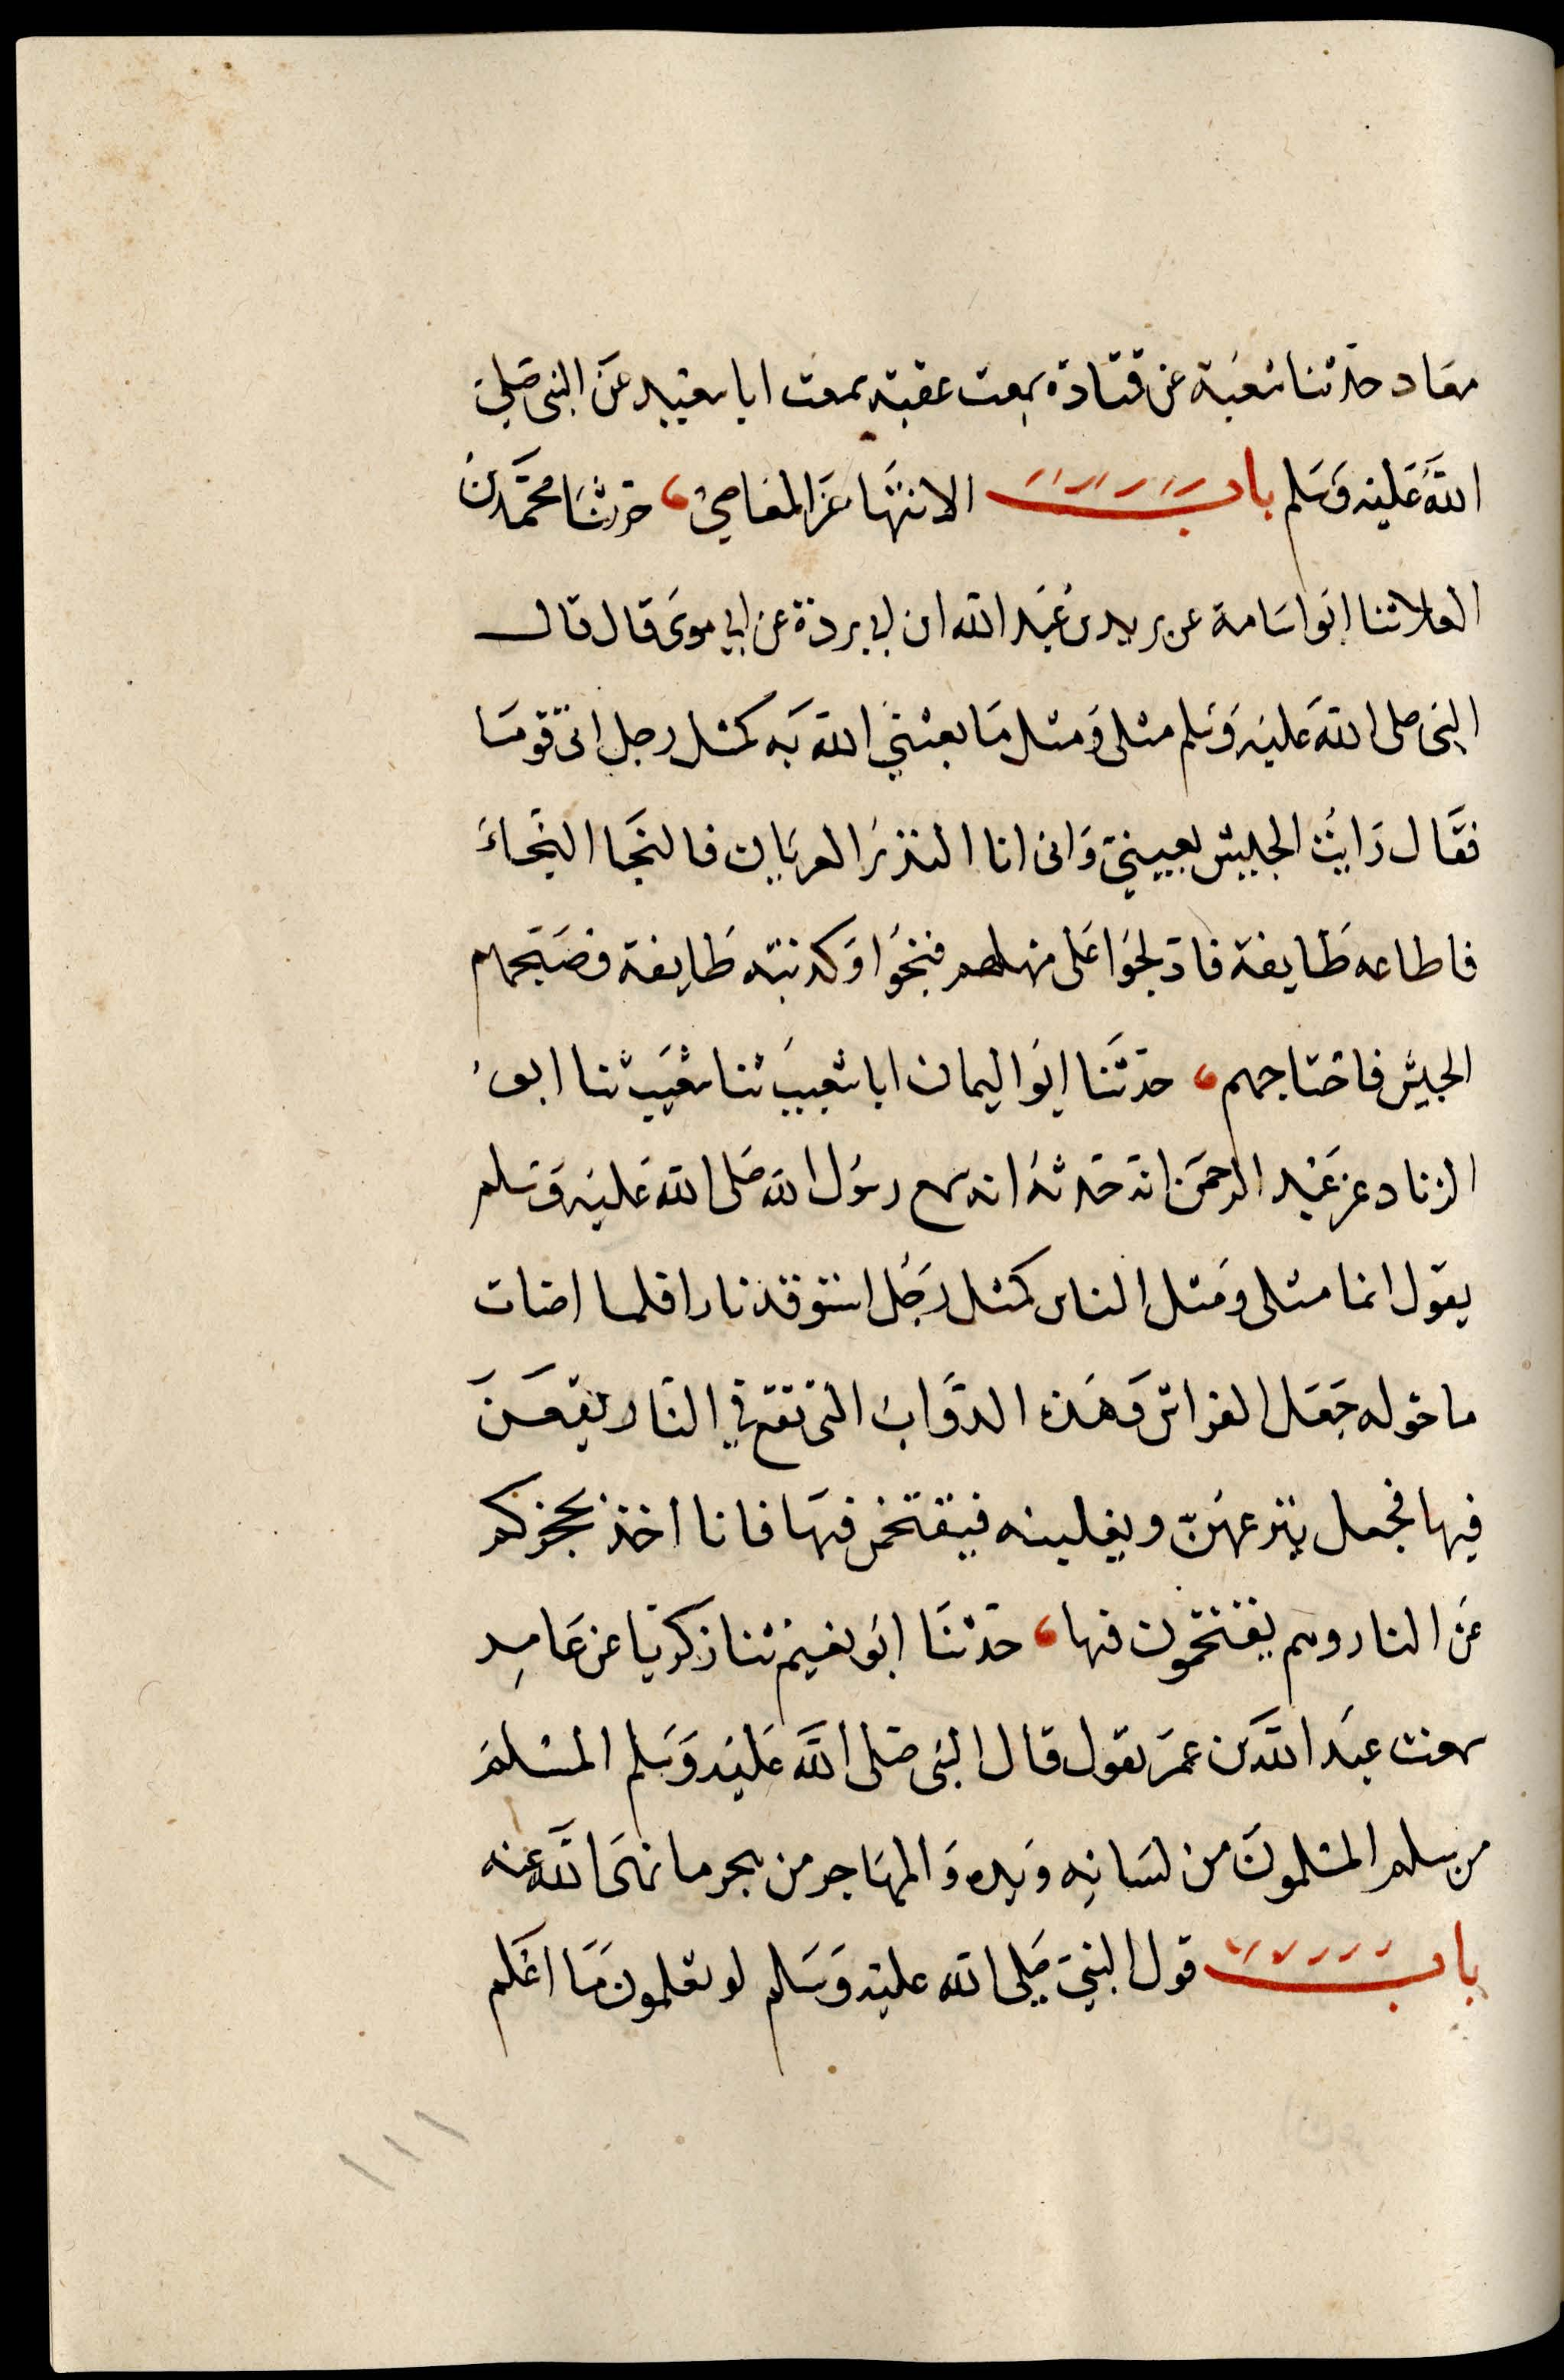 معاد حدثنا شعبة عن قتادة سمعت عقبة سمعت ابا سعيد عن النبى صلى
الله عليه وسلم باب الانتها عن المعاصى حدثنا محمد بن
العلا ثنا ابو اسامة عن بريد بن عبد الله ابن ابى بردة عن ابى موسى قال قال
النبى صلى الله عليه وسلم مثلى ومثل ما بعثنى الله به كمثل رجل اتى قوما
فقال رايت الجيش بعينى وانى انا النذير العريان فالنجا النجاء
فاطاعه طايفة فادلجوا على مهلهم فنجوا وكذبته طايفة فصبحهم
الجيش فاجتاحهم حدثنا ابو اليمان ابا شعيب ثنا شعيب ثنا ابو
الزناد عن عبد الرحمن انه حدثه انه سمع رسول الله صلى الله عليه وسلم
يقول انما مثلى ومثل الناس كمثل رجل استوقد نارا فلما اضات
ما حوله جعل الفراش وهذه الدواب التى تقع فى النار يقعن
فيها فجعل ينزعهن ويغلبنه فيقتحمن فيها فانا اخذ بحجزكم
عن النار وهم يقتحمون فيها حدثنا ابو نعيم ثنا زكريا عن عامر
سمعت عبد الله بن عمر يقول قال النبى صلى الله عليه وسلم المسلم
من سلم المسلمون من لسانه ويده والمهاجر من هجر ما نهى الله عنه
باب قول النبى صلى الله عليه وسلم لو تعلمون ما اعلم
١١١